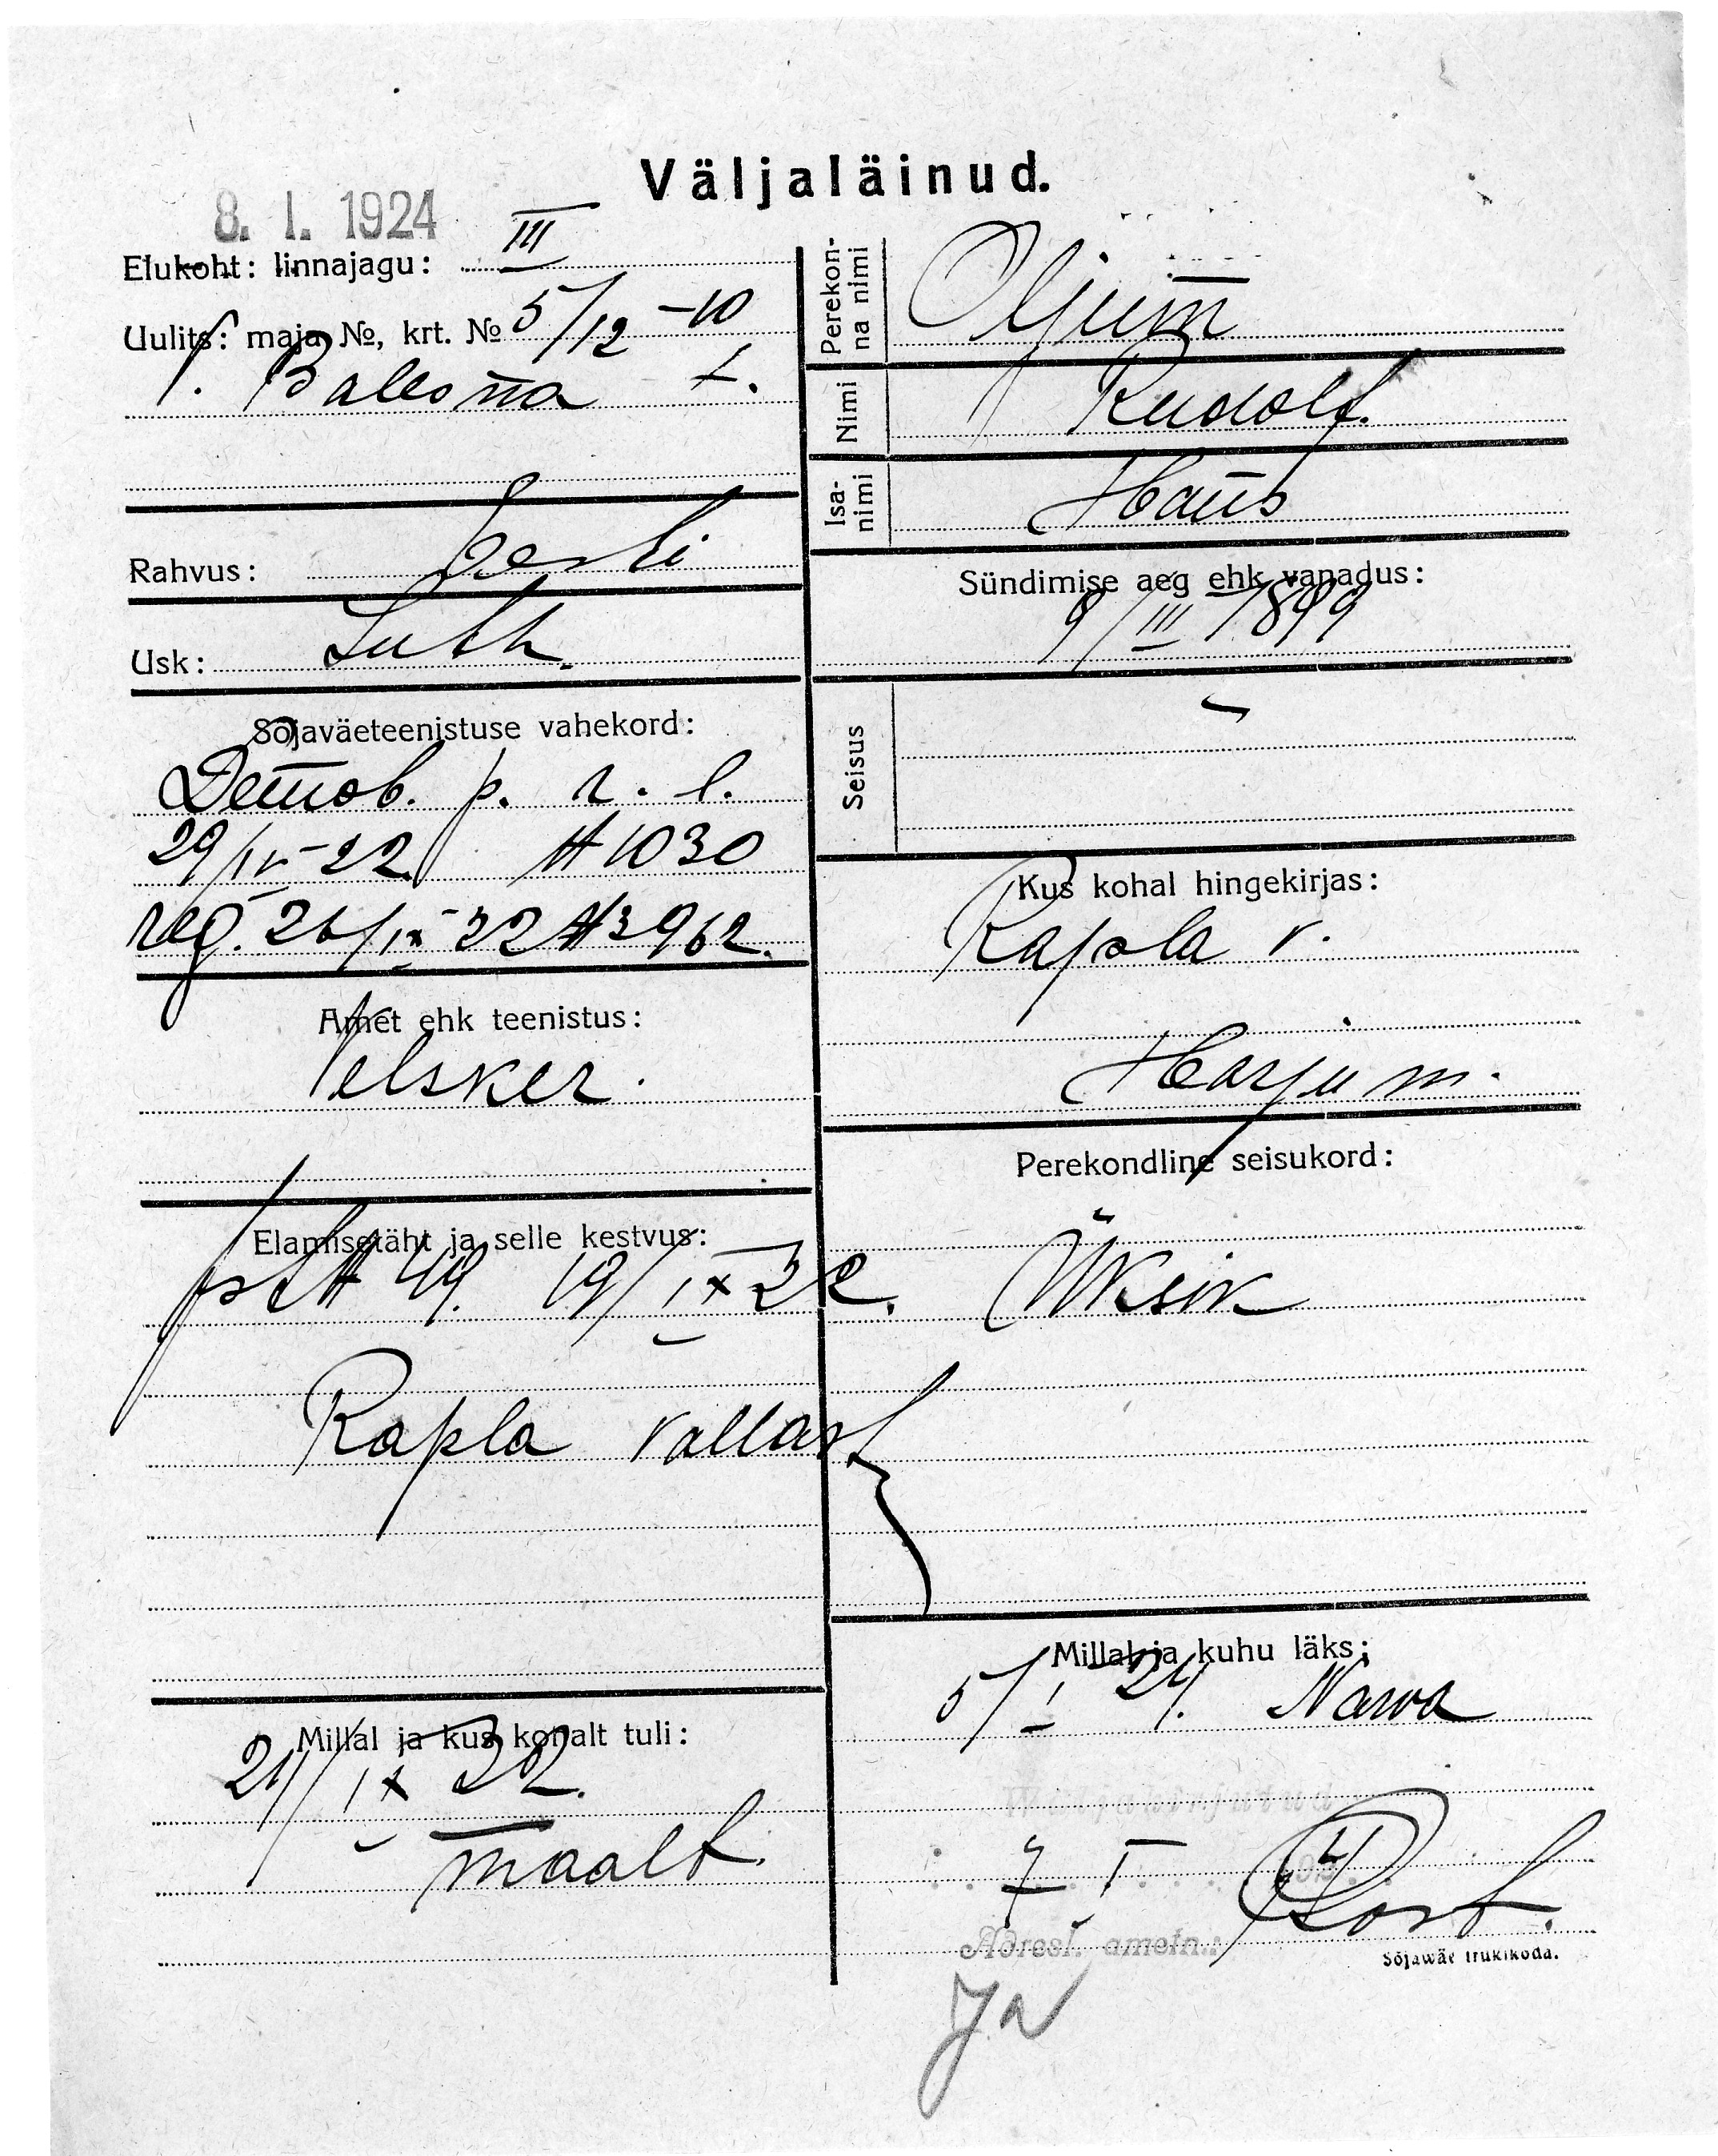 Väljaläinud.
8. I. 1924
Elukoht: linnajagu: III
Uulits: maja №, krt. № 5/12 -10
Baleona t.
Rahvus: Eesti
Usk: Luth.
Sõjaväeteenistuse vahekord:
Demob. p. r. l.
29/IV-22. № 1030
reg. 26/IX 22 № 3962.
Amet ehk teenistus:
Velsker.
Elamisetäht ja selle kestvus:
№ 49. 19/IX 22.
Rapla vallast
Millal ja kus kohalt tuli:
21/IX 22.
maalt.
Perekonna nimi
Nimi Rudolf.
Isanimi Hans
Sündimise aeg ehk vanadus:
9/III 1899
Seisus -
Kus kohal hingekirjas:
Rapla v.
Harju m.
Perekondline seisukord:
Üksik
Millal ja kuhu läks:
5/I 24. Narva
7 I
Adresl. ametn.:
Sõjawäe trükikoda.